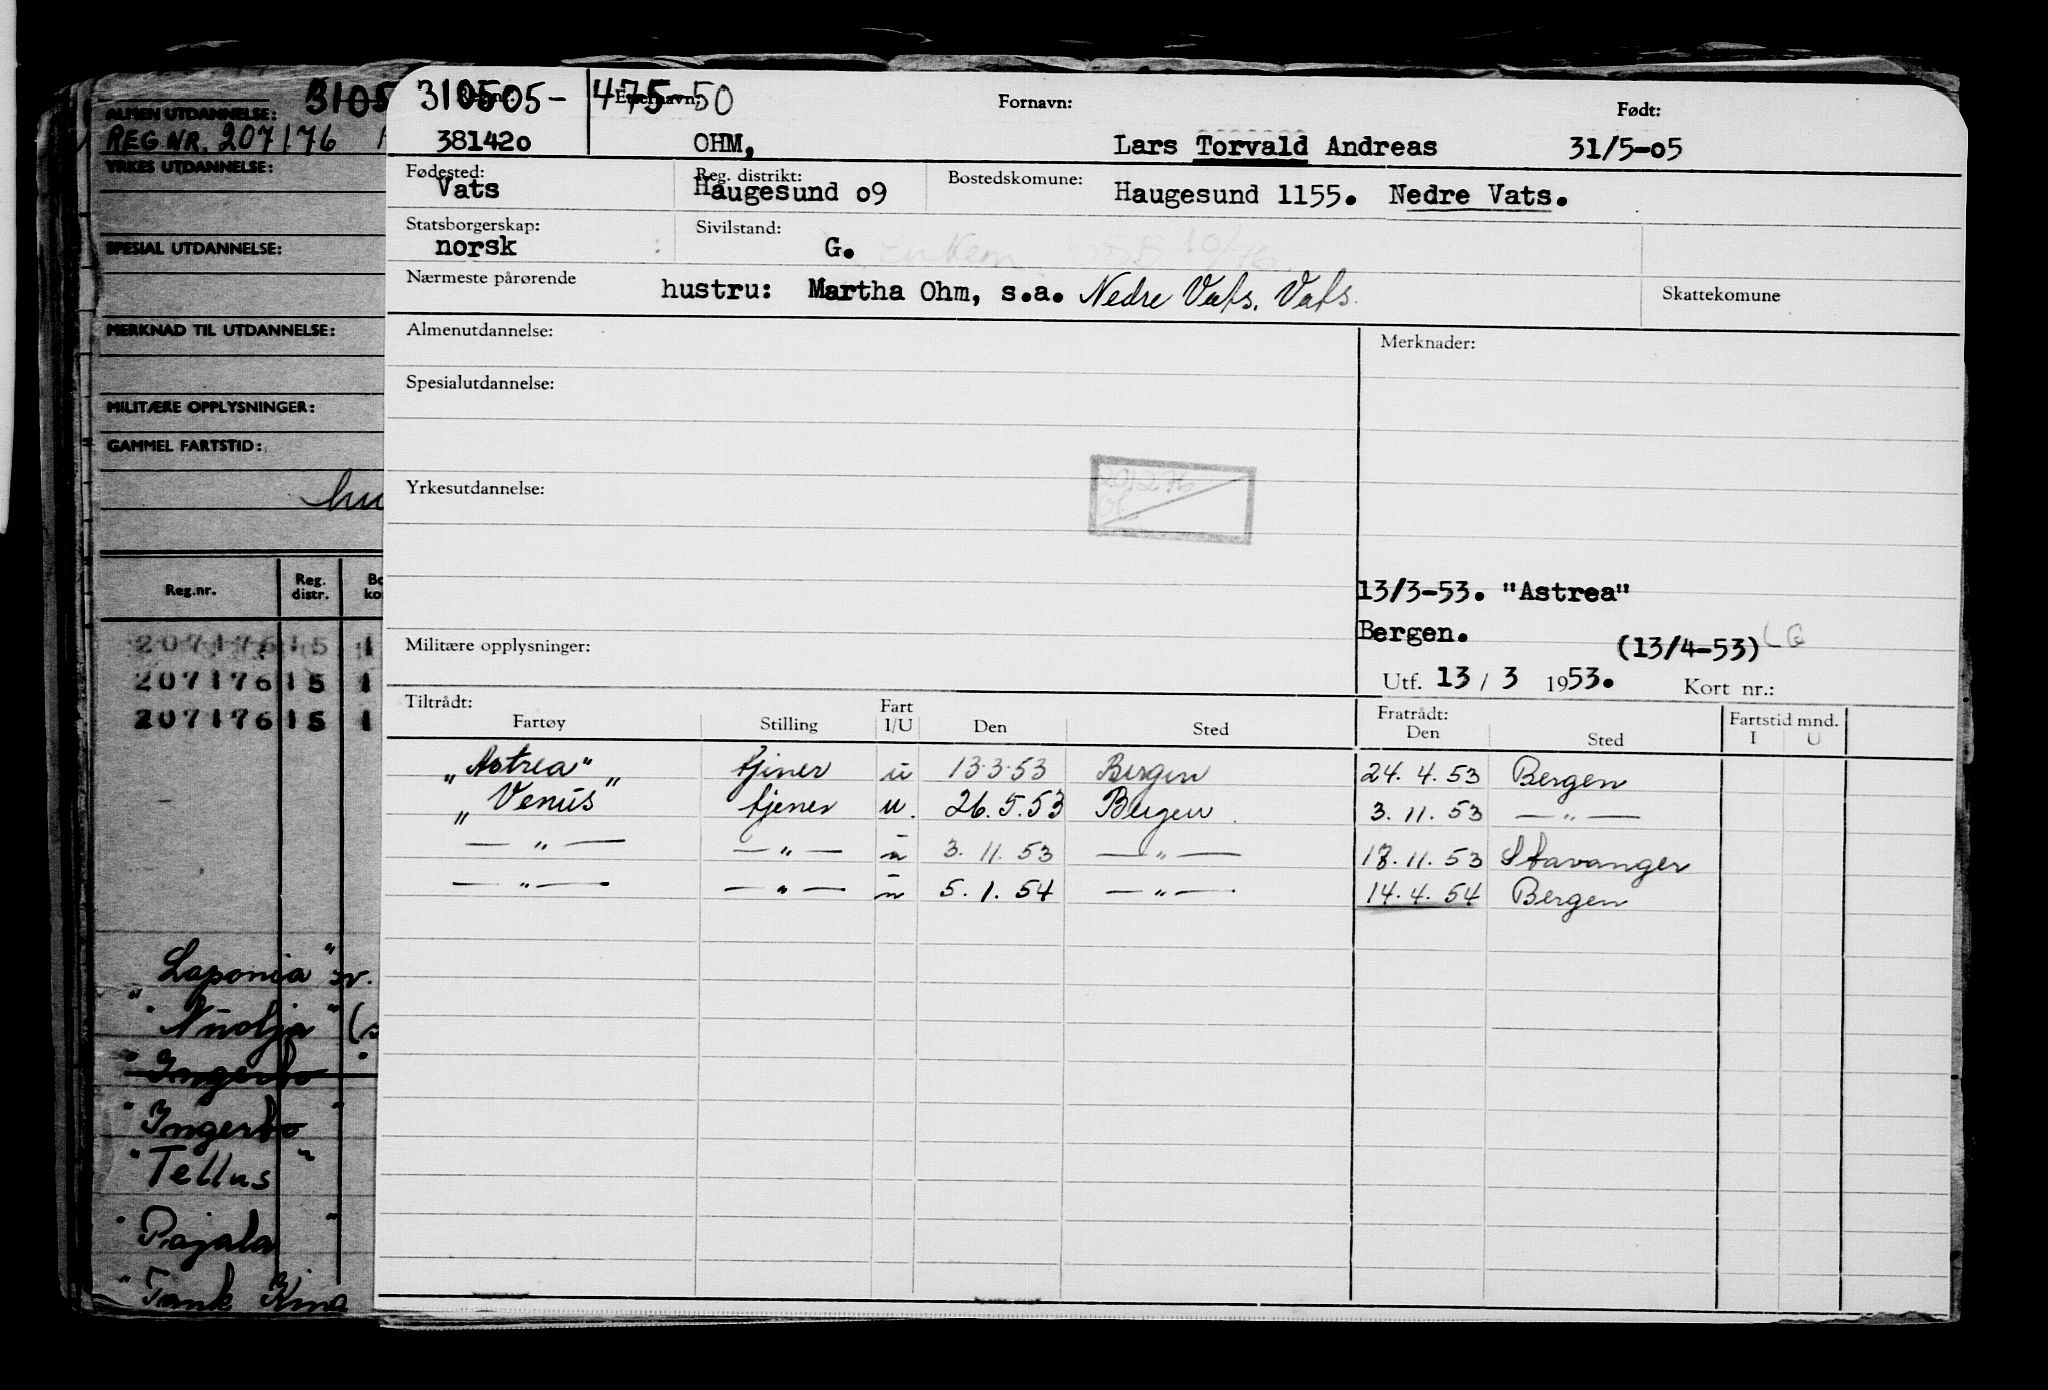 ALMEN UTDANNELSE: 3105
REG.NR. 207176
YRKES UTDANNELSE:
SPESIAL UTDANNELSE:
MERKNAD TIL UTDANNELSE:
MILITÆRE OPPLYSNINGER:
GAMMEL FARTSTID:
hu
Reg.nr. Reg. distr. Bo ko
207176 15 1
207176 15 1
207176 15 1
"Laponia" sv.
"Nuolja" (s
"Ingerto"
"Ingerto"
"Tellus"
"Pajala"
"Tank King
310505- 475-50
Reg.nr. Etternavn: Fornavn: Født:
381420 OHM, Lars Torvald Andreas 31/5-05
Fødested: Reg. distrikt: Bostedskomune:
Vats Haugesund 09 Haugesund 1155. Nedre Vats.
Statsborgerskap: Sivilstand:
norsk G. Enkem
Nærmeste pårørende hustru: Martha Ohm, s.a. Nedre Vats. Vats. Skattekomune
Almenutdannelse: Merknader:
Spesialutdannelse:
Yrkesutdannelse:
13/3-53. "Astrea"
Bergen.
(13/4-53) LG
Militære opplysninger:
Utf. 13 / 3 1953. Kort nr.:
Tiltrådt: Fratrådt: Fartstid mnd.
Fartøy Stilling Fart I/U Den Sted Den Sted I U
"Astrea" tjener u 13.3.53 Bergen 24.4.53 Bergen
"Venus" tjener u. 26.5.53 Bergen 3.11.53 — " —
— " — — " — u 3.11.53 — " — 18.11.53 Stavanger
— " — — " — u 5.1.54 — " — 14.4.54 Bergen